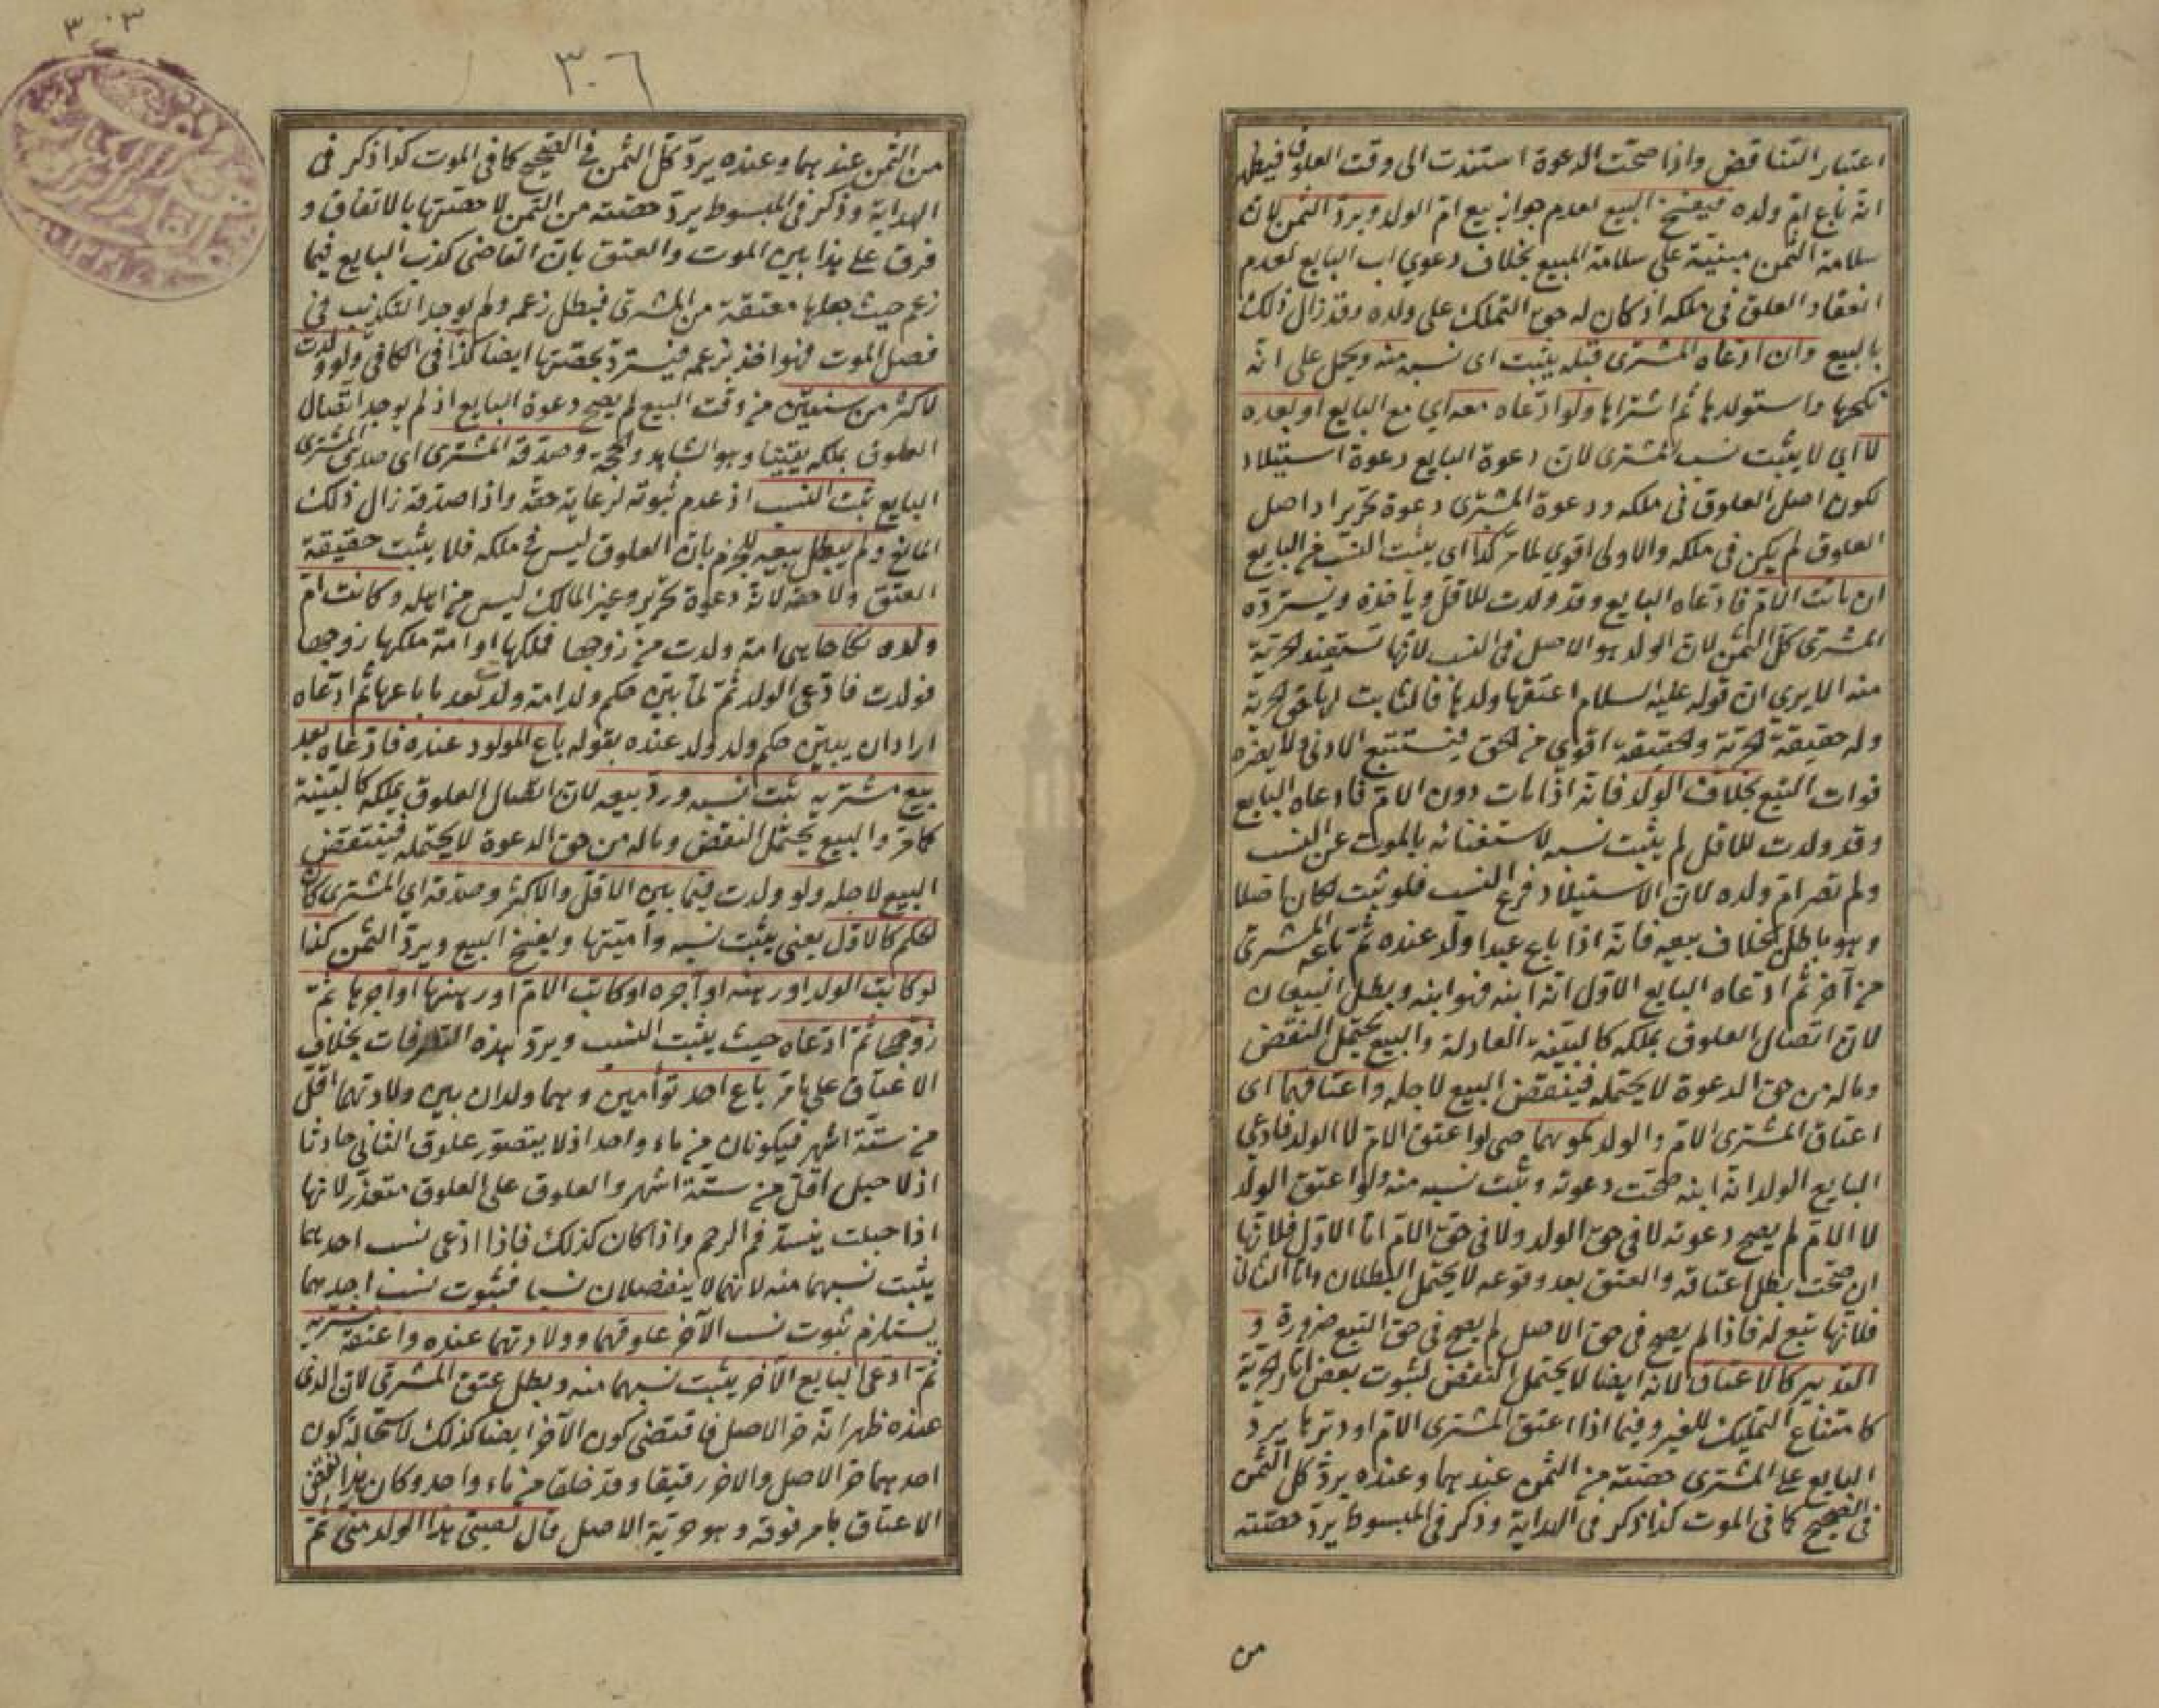 اعتبار التناقض واذا صحت الدعوة استندت الى وقت العلوق فيظهر
انه باع ام ولده فيفسخ البيع لعدم جواز بيع ام الولد ويرد الثمن لان
سلامة الثمن مبنية على سلامة المبيع بخلاف دعوي اب البايع لعدم
انعقاد العلق فى ملكه اذ كان له حق التملك على ولده وقد زال ذلك
بالبيع وان ادعاه المشترى قبله يثبت اى نسبه منه ويحمل على انه
نكحها واستولدها ثم اشتراها ولو ادعاه معه اي مع البايع او بعده
لا اى لا يثبت نسب المشترى لان دعوة البايع دعوة استيلاد
لكون اصل العلوق فى ملكه ودعوة المشترى دعوة تحرير اذ اصل
العلوق لم يكن فى ملكه والاولى اقوي لما مر كذا اى يثبت النسب من البايع
ان ماتت الام فادعاه البايع وقد ولدت للاقل ويأخذه ويسترده
المشترى كل الثمن لان الولد هو الاصل فى النسب لانها تستفيد الحرية
منه الا يرى ان قوله عليه السلام اعتقها ولدها فالثابت لها حق الحرية
وله حقيقة الحرية والحقيقة اقوي من الحق فيستتبع الادنى ولا يضره
فوات التبع بخلاف الولد فانه اذا مات دون الام فادعاه البايع
وقد ولدت للاقل لم يثبت نسبه لاستغنائه بالموت عن النسب
ولم تصر ام ولده لان الاستيلاد فرع النسب فلو ثبت لكان اصلا
وهو باطل بخلاف بيعه فانه اذا باع عبدا ولد عنده ثم باعه المشترى
من آخر ثم ادعاه البايع الاول انه ابنه فهو ابنه وبطل البيعان
لان اتصال العلوق بملكه كالبينة العادلة والبيع يحتمل النقض
وماله من حق الدعوة لا يحتمله فينتقض البيع لاجله واعتاقهما اى
اعتاق المشترى الام والولد كموتهما حتى لو اعتق الام لا الولد فادعي
البايع الولد انه ابنه صحت دعوته وثبت نسبه منه ولو اعتق الولد
لا الام لم يصح دعوته لا فى حق الولد ولا فى حق الام اما الاول فلانها
ان صحت بطل اعتاقه والعتق بعد وقوعه لا يحتمل البطلان واما الثانى
فلانها تبع له فاذا لم يصح فى حق الاصل لم يصح فى حق التبع ضرورة و
التدبير كالاعتاق لانه ايضا لا يحتمل النقض لثبوت بعض اثار الحرية
كامتناع التمليك للغير وفيما اذا اعتق المشترى الام او دبرها يرد
البايع على المشترى حصته من الثمن عندهما وعنده يرد كل الثمن
فى الصحيح كما فى الموت كذا ذكر فى الهداية وذكر فى المبسوط يرد حصته
من
٣٠٣
٣٠٦
من الثمن عندهما وعنده يرد كل الثمن فى الصحيح كما فى الموت كذا ذكر فى
الهداية وذكر فى المبسوط يرد حصته من الثمن لا حصتها بالاتفاق و
فرق على هذا بين الموت والعتق بان القاضى كذب البايع فيما
زعم حيث جعلها معتقة من المشترى فبطل زعمه ولم يوجد التكذيب فى
فصل الموت فيواخذ بزعمه فيسترد بحصتها ايضا كذا فى الكافى ولو ولدت
لاكثر من سنتين من وقت البيع لم يصح دعوة البايع اذ لم يوجد اتصال
العلوق بملكه يقينا وهو الشاهد والحجة وصدقه المشترى اى صدق المشترى
البايع ثبت النسب اذ عدم ثبوته لرعاية حقه واذا صدقه زال ذلك
المانع ولم يبطل بيعه للجزم بان العلوق ليس فى ملكه فلا يثبت حقيقة
العتق ولا حقه لانه دعوة تحرير وغير المالك ليس من اهله وكانت ام
ولده نكاحا هى امة ولدت من زوجها فملكها او امة ملكها زوجها
فولدت فادعى الولد ثم لما بين حكم ولد امة ولدت بعد ما باعها ثم ادعاه
اراد ان يبين حكم ولد ولد عنده بقوله باع المولود عنده فادعاه بعد
بيع مشتريه ثبت نسبه ورد بيعه لان اتصال العلوق بملكه كالبينة
كما مر والبيع يحتمل النقض وماله من حق الدعوة لا يحتمله فينتقض
البيع لاجله ولو ولدت فيما بين الاقل والاكثر وصدقه اي المشترى كان
الحكم كالاول يعنى يثبت نسبه واميتها ويفسخ البيع ويرد الثمن كذا
لو كاتب الولد او رهنه او آجره او كاتب الام او رهنها او آجرها ثم
زوجها ثم ادعاه حيث يثبت النسب ويرد هذه التصرفات بخلاف
الاعتاق على ما مر باع احد توأمين وهما ولدان بين ولادتهما اقل
من ستة اشهر فيكونان من ماء واحد اذ لا يتصور علوق الثانى حادثا
اذ لا حبل اقل من ستة اشهر والعلوق على العلوق متعذر لانها
اذا حبلت ينسد فم الرحم واذا كان كذلك فاذا ادعى نسب احدهما
يثبت نسبهما منه لانهما لا ينفصلان نسبا فثبوت نسب احدهما
يستلزم ثبوت نسب الآخر علوقهما وولادتهما عنده واعتقه مشتريه
ثم ادعى البايع الآخر يثبت نسبهما منه وبطل عتق المشترى لان الذى
عنده ظهر انه حر الاصل فاقتضى كون الآخر ايضا كذلك لاستحالة كون
احدهما حر الاصل والاخر رقيقا وقد خلقا من ماء واحد وكان هذا نقض
الاعتاق بامر فوقه وهو حرية الاصل قال لصبى هذا الولد منى ثم